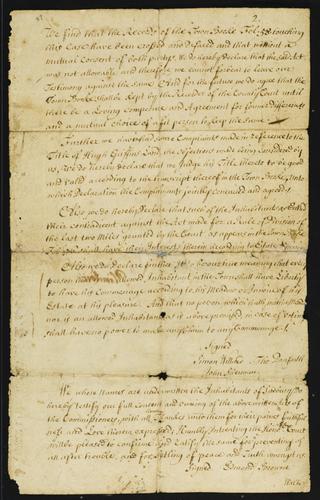 2.
We find that the Records of the Town Booke Fol: 58 touching
this Case have been crossed and defaced and that without a
mutual Consent of both partys. We do hereby declare that the said Act
was not allowable and therefore we cannot forbear to leave our
Testimony against the same And for the future we do agree that the
Town Booke shall be Kept by the Recorder of the County Court until
there be a Loving Composure and Agreement for former differences
and a mutual choice of a fit person to keep the same.
Further we having heard some Complaints made in reference to the
Title of Hugh Griffins Land, the Objections made being Considered by
us, We do hereby declare that we Judge his Title thereto to be good
and Valid according to the transcript thereof in the Town Booke, unto
which Declaration the Complainants jointly concurred and agreed.
Also we do hereby Declare that such of the Inhabitants as
their concontent against the Act made for a Rule of Division of
the last two Miles granted by the Court as appears in the Town Booke
shall have their Interests therein according to Estate
Also we do Declare further
person allowed Inhabitant in the Town shall have Liberty
to have his Commonage according to his Meadow or Invoice of his
Estate at his pleasure. And that no person which shall
nor is an allowed Inhabitant as above premised in case of Voting
shall have no power to make
Signed
Simon Willard Tho Danforth
John Sherman
We whose Names are underwritten the Inhabitants of Sudbury do
hereby testify our full Consent and concurring to the above
the Commissioners, with all Thanks unto them for their pains faithful
ness and Love therein expressed, Humbly Intreating the Honrd Court
will be pleased to confirme and Ratify the same for preventing of
all after trouble, and for setling of peace and Truth amongst us.
Signed Edmond Browne